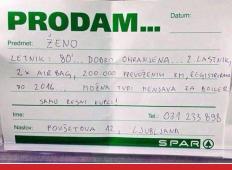 PRODAM...
Datum:
Predmet: ŽENO
LETNIK: 80'... DOBRO OHRANJENA... 2. LASTNIK,
2X AIRBAG, 200.000 PREVOŽENIH KM, REGISTRIRANA
DO 2016... MOŽNA TUDI MENJAVA ZA BOILER
SAMO RESNI KUPCI!
Ime: Tel.: 031 233 898
Naslov: POVŠETOVA 12, LJUBLJANA
SPAR